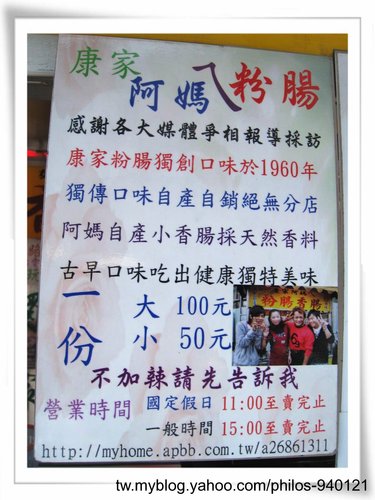 康家
阿媽ㄟ粉腸
感謝各大媒體爭相報導採訪
康家粉腸獨創口味於1960年
獨傳口味自產自銷絕無分店
阿媽自產小香腸採天然香料
古早口味吃出健康獨特美味
一份
大 100元
小 50元
粉腸香腸
不加辣請先告訴我
營業時間
國定假日 11:00至賣完止
一般時間 15:00至賣完止
http://myhome.apbb.com.tw/a26861311
tw.myblog.yahoo.com/philos-940121